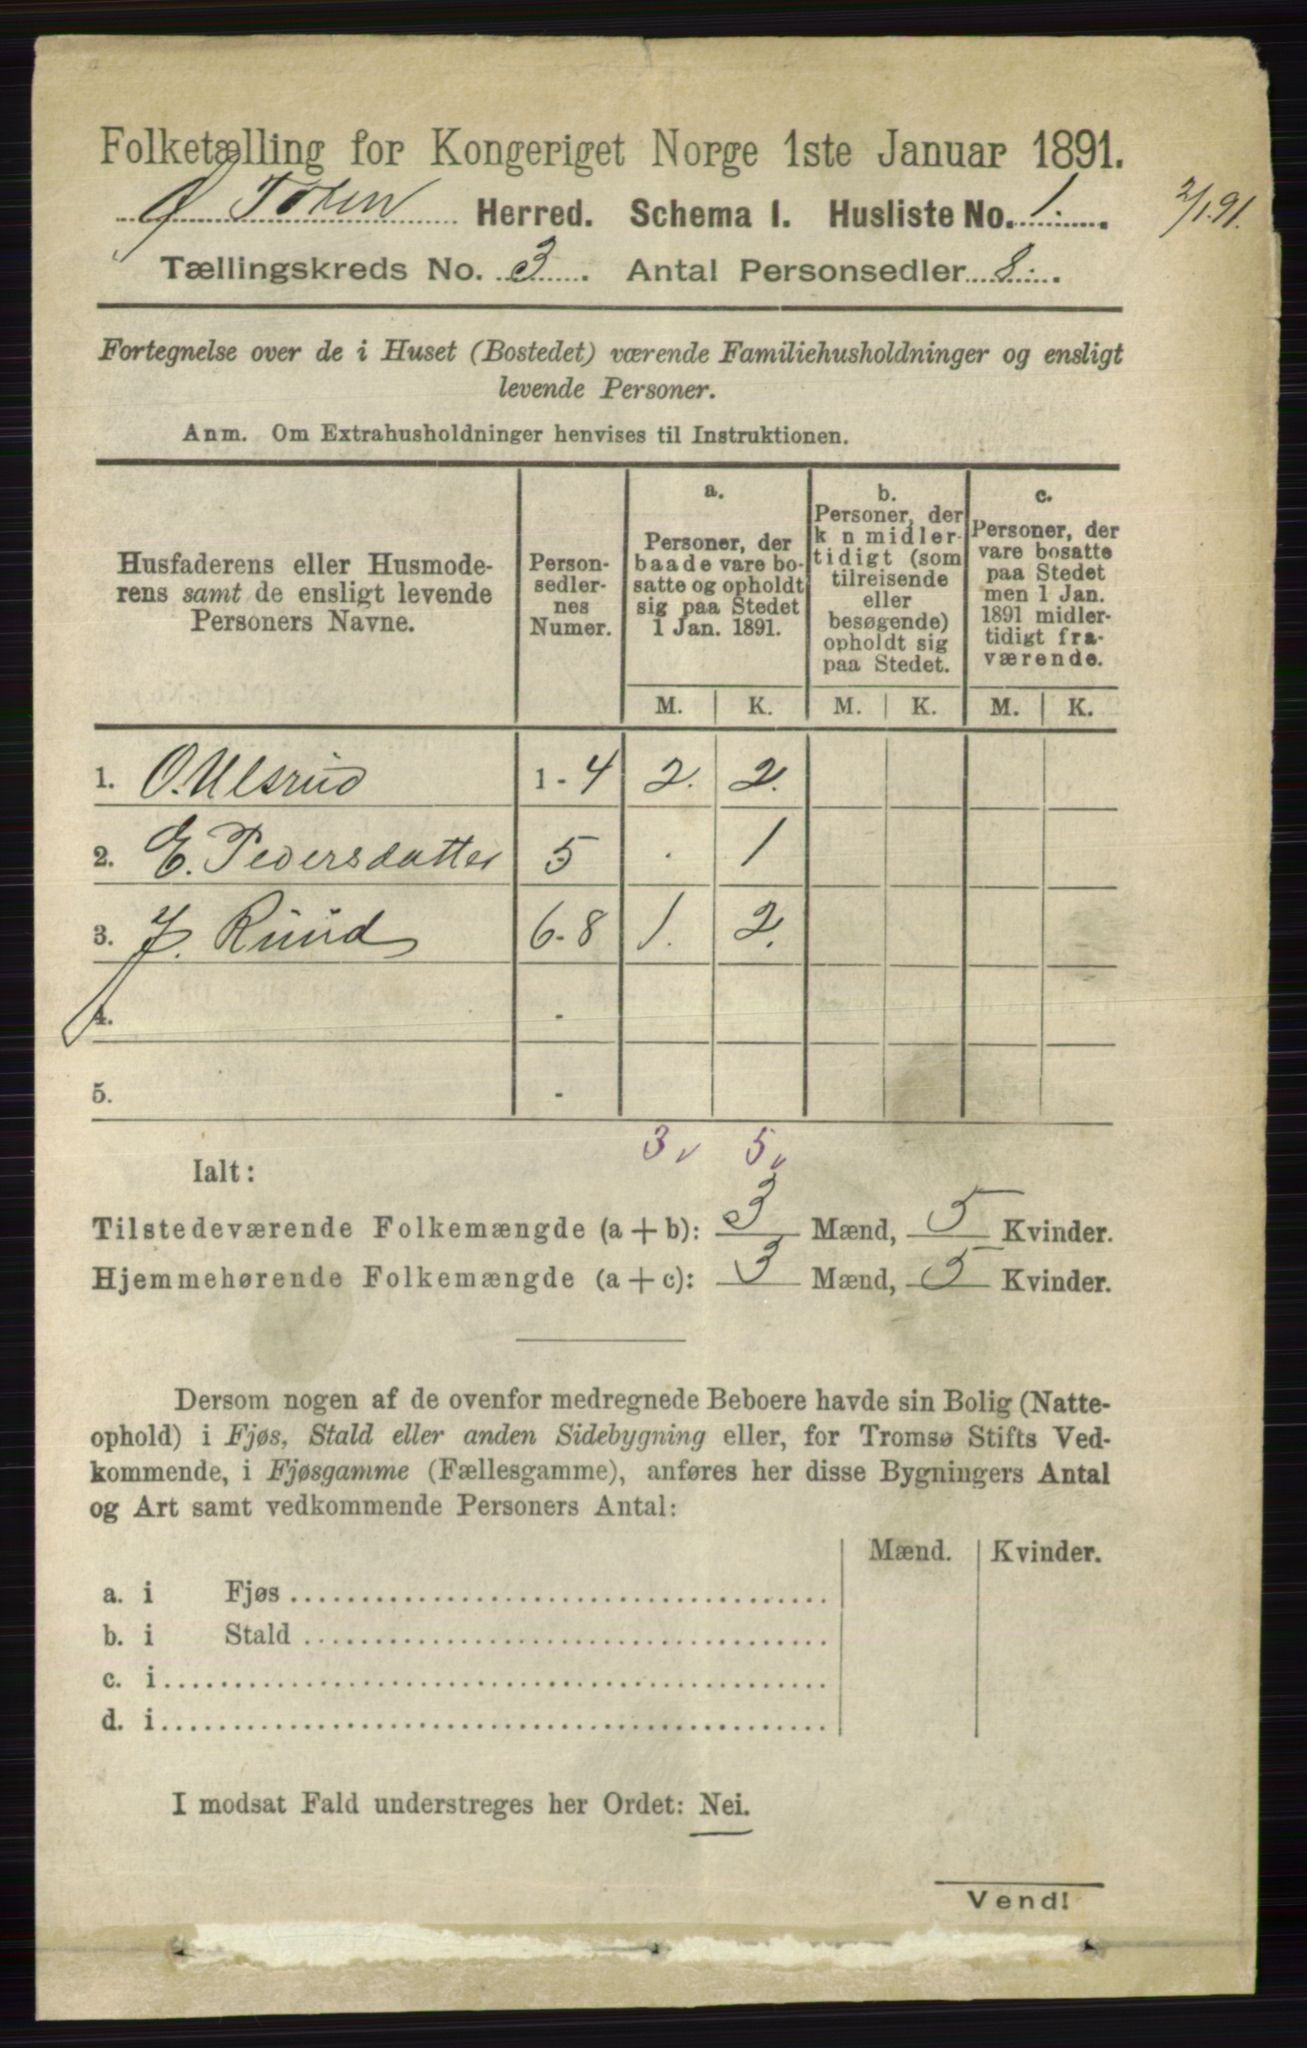 Folketælling for Kongeriget Norge 1ste Januar 1891.
Ø Toten Herred. Schema I. Husliste No. 1. 2/1.91.
Tællingskreds No. 3. Antal Personsedler 8.
Fortegnelse over de i Huset (Bostedet) værende Familiehusholdninger og ensligt
levende Personer.
Anm. Om Extrahusholdninger henvises til Instruktionen.
Husfaderens eller Husmode-
rens samt de ensligt levende
Personers Navne.
Person-
sedler-
nes
Numer.
a.
Personer, der
baade vare bo-
satte og opholdt
sig paa Stedet
1 Jan. 1891.
b.
Personer, der
k n midler-
tidigt (som
tilreisende
eller
besøgende)
opholdt sig
paa Stedet.
c.
Personer, der
vare bosatte
paa Stedet
men 1 Jan.
1891 midler-
tidigt fra-
værende.
M. K. M. K. M. K.
1. O. Ulsrud 1-4 2. 2.
2. E. Pedersdatter 5 . 1
3. J. Ruud 6-8 1. 2.
4. -
5. -
3 v 5 v
Ialt:
Tilstedeværende Folkemængde (a + b): 3 Mænd, 5 Kvinder.
Hjemmehørende Folkemængde (a + c): 3 Mænd, 5 Kvinder.
Dersom nogen af de ovenfor medregnede Beboere havde sin Bolig (Natte-
ophold) i Fjøs, Stald eller anden Sidebygning eller, for Tromsø Stifts Ved-
kommende, i Fjøsgamme (Fællesgamme), anføres her disse Bygningers Antal
og Art samt vedkommende Personers Antal:
Mænd. Kvinder.
a. i Fjøs
b. i Stald
c. i
d. i
I modsat Fald understreges her Ordet: Nei.
Vend!